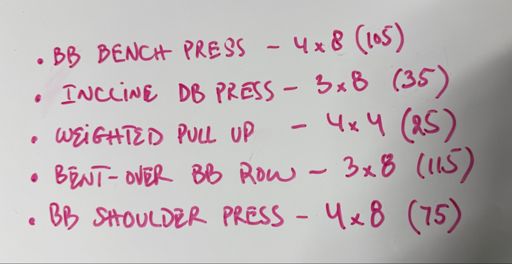 • BB BENCH PRESS - 4x8 (105)
• INCLINE DB PRESS - 3x8 (35)
• WEIGHTED PULL UP - 4x4 (25)
• BENT-OVER BB ROW - 3x8 (115)
• BB SHOULDER PRESS - 4x8 (75)